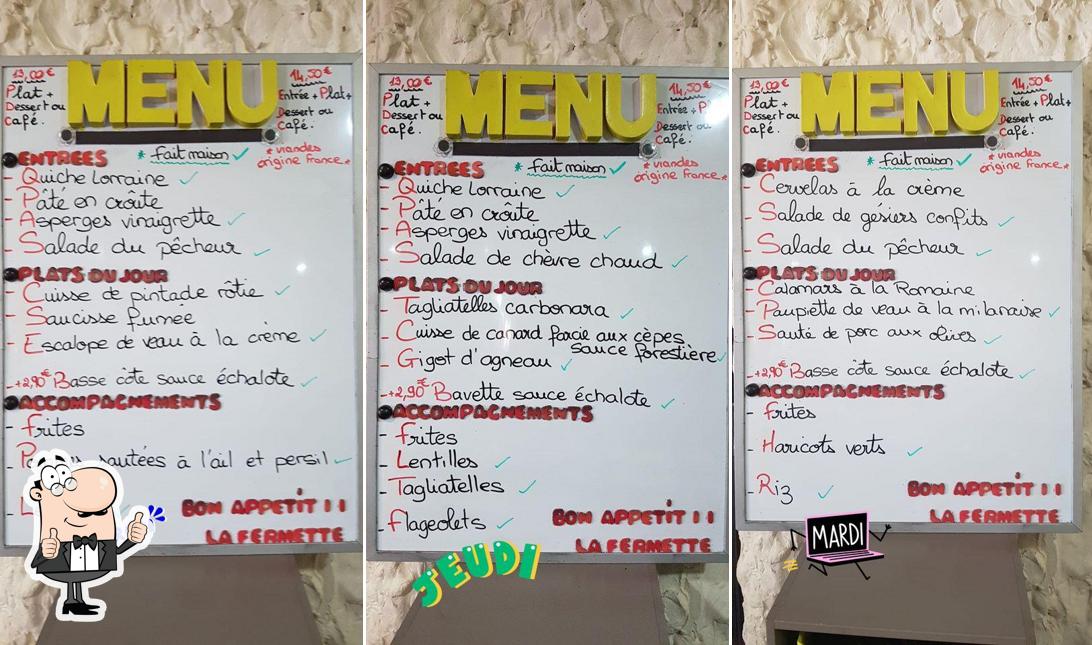 13,00 €
Plat +
Dessert ou
Café.
MENU
14,50 €
Entrée + Plat +
Dessert ou
Café.
ENTREES
* fait maison ✓
* viandes
origine France. *
- Quiche Lorraine ✓
- Pâté en croûte
- Asperges vinaigrette ✓
- Salade du pêcheur ✓
PLATS DU JOUR
- Cuisse de pintade rôtie ✓
- Saucisse fumée
- Escalope de veau à la crème ✓
- +2,90€ Basse côte sauce échalote ✓
ACCOMPAGNEMENTS
- frites
- sautées à l'ail et persil ✓
BON APPETIT !!
LA FERMETTE
13,00 €
Plat +
Dessert ou
Café.
MENU
14,50 €
Entrée + P
Dessert ou
Café.
ENTREES
* fait maison ✓
* viandes
origine France. *
- Quiche Lorraine ✓
- Pâté en croûte
- Asperges vinaigrette ✓
- Salade de chèvre chaud ✓
PLATS DU JOUR
- Tagliatelles carbonara ✓
- Cuisse de canard farcie aux cèpes
sauce forestière ✓
- Gigot d'agneau ✓
- +2,90€ Bavette sauce échalote ✓
ACCOMPAGNEMENTS
- frites
- Lentilles ✓
- Tagliatelles ✓
- flageolets ✓
BON APPETIT !!
LA FERMETTE
JEUDI
13,00 €
Plat +
Dessert ou
Café.
MENU
14,50 €
Entrée + Plat +
Dessert ou
Café.
ENTREES
* fait maison ✓
* viandes
origine France. *
- Cervelas à la crème
- Salade de gésiers confits ✓
- Salade du pêcheur ✓
PLATS DU JOUR
- Calamars à la Romaine
- Paupiette de veau à la milanaise ✓
- Sauté de porc aux olives ✓
- +2,90€ Basse côte sauce échalote ✓
ACCOMPAGNEMENTS
- frites
- Haricots verts ✓
- Riz ✓
BON APPETIT !!
LA FERMETTE
MARDI